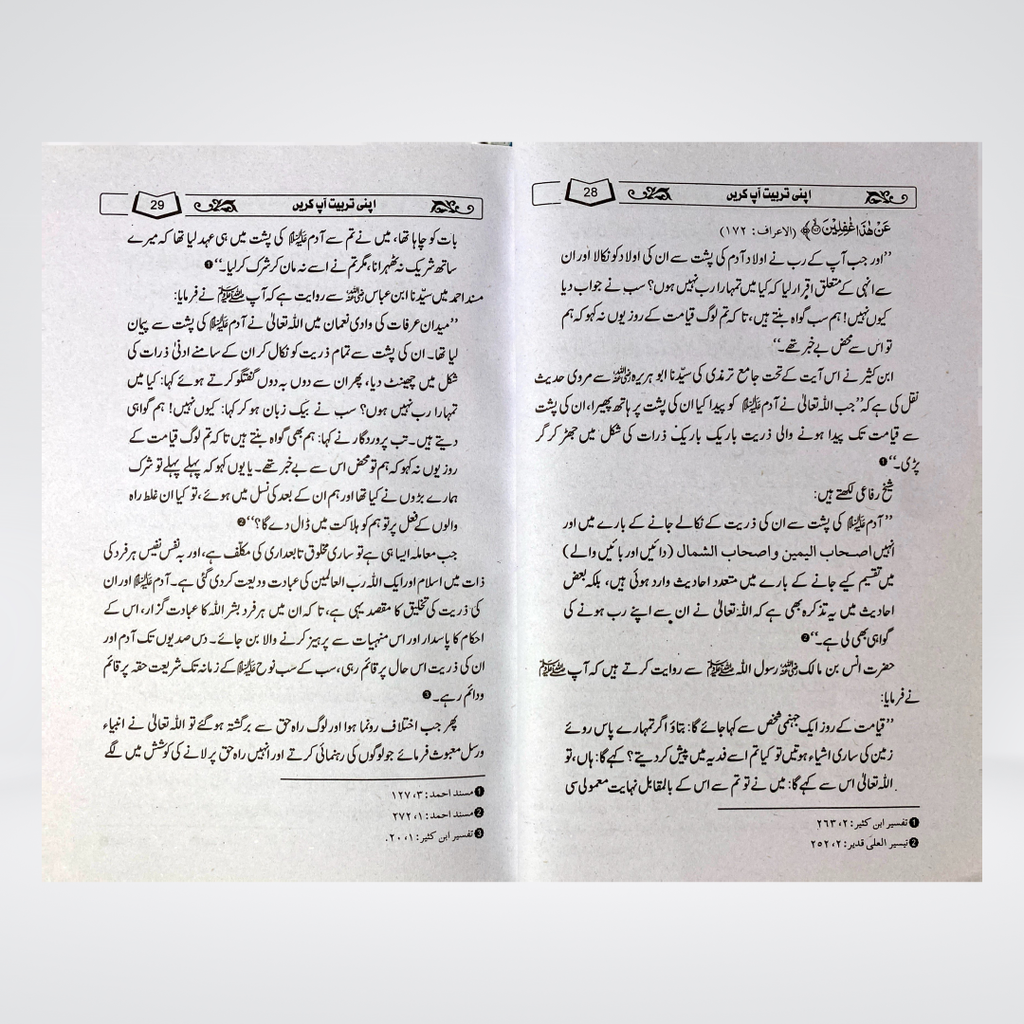 اپنی تربیت آپ کریں 28
عَنْ هٰذَا غٰفِلِيْنَ ﴾ (الاعراف: ۱۷۲)
’’اور جب آپ کے رب نے اولاد آدم کی پشت سے ان کی اولاد کو نکالا اور ان
سے انہی کے متعلق اقرار لیا کہ کیا میں تمہارا رب نہیں ہوں؟ سب نے جواب دیا
کیوں نہیں! ہم سب گواہ بنتے ہیں، تاکہ تم لوگ قیامت کے روز یوں نہ کہو کہ ہم
تو اس سے محض بے خبر تھے۔‘‘
ابن کثیر نے اس آیت کے تحت جامع ترمذی کی سیّدنا ابو ہریرہ رضی اللہ عنہ سے مروی حدیث
نقل کی ہے کہ ’’جب اللہ تعالیٰ نے آدم علیہ السلام کو پیدا کیا ان کی پشت پر ہاتھ پھیرا، ان کی پشت
سے قیامت تک پیدا ہونے والی ذریت باریک باریک ذرات کی شکل میں جھڑ کر گر
پڑی۔‘‘ ❶
شیخ رفاعی لکھتے ہیں:
’’آدم علیہ السلام کی پشت سے ان کی ذریت کے نکالے جانے کے بارے میں اور
انہیں اصحاب الیمین و اصحاب الشمال (دائیں اور بائیں والے)
میں تقسیم کیے جانے کے بارے میں متعدد احادیث وارد ہوئی ہیں، بلکہ بعض
احادیث میں یہ تذکرہ بھی ہے کہ اللہ تعالیٰ نے ان سے اپنے رب ہونے کی
گواہی بھی لی ہے۔‘‘ ❷
حضرت انس بن مالک رضی اللہ عنہ رسول اللہ ﷺ سے روایت کرتے ہیں کہ آپ ﷺ
نے فرمایا:
’’قیامت کے روز ایک جہنمی شخص سے کہا جائے گا: بتاؤ اگر تمہارے پاس روئے
زمین کی ساری اشیاء ہوتیں تو کیا تم اسے فدیہ میں پیش کر دیتے؟ کہے گا: ہاں، تو
اللہ تعالیٰ اس سے کہے گا: میں نے تو تم سے اس کے بالمقابل نہایت معمولی سی
❶ تفسیر ابن کثیر: ۲، ۲۶۳
❷ تیسیر العلی قدیر: ۲، ۲۵۲
اپنی تربیت آپ کریں 29
بات کو چاہا تھا، میں نے تم سے آدم علیہ السلام کی پشت میں ہی عہد لیا تھا کہ میرے
ساتھ شریک نہ ٹھہرانا، مگر تم نے اسے نہ مان کر شرک کر لیا۔‘‘ ❶
مسند احمد میں سیّدنا ابن عباس رضی اللہ عنہ سے روایت ہے کہ آپ ﷺ نے فرمایا:
’’میدان عرفات کی وادی نعمان میں اللہ تعالیٰ نے آدم علیہ السلام کی پشت سے پیمان
لیا تھا۔ ان کی پشت سے تمام ذریت کو نکال کر ان کے سامنے ادنیٰ ذرات کی
شکل میں چھینٹ دیا، پھر ان سے دوں بہ دوں گفتگو کرتے ہوئے کہا: کیا میں
تمہارا رب نہیں ہوں؟ سب نے بیک زبان ہو کر کہا: کیوں نہیں! ہم گواہی
دیتے ہیں۔ تب پروردگار نے کہا: ہم بھی گواہ بنتے ہیں تاکہ تم لوگ قیامت کے
روز یوں نہ کہو کہ ہم تو محض اس سے بے خبر تھے۔ یا یوں کہو کہ پہلے پہلے تو شرک
ہمارے بڑوں نے کیا تھا اور ہم ان کے بعد کی نسل میں ہوئے، تو کیا ان غلط راہ
والوں کے فعل پر تو ہم کو ہلاکت میں ڈال دے گا؟‘‘ ❷
جب معاملہ ایسا ہی ہے تو ساری مخلوق تابعداری کی مکلّف ہے، اور بہ نفس نفیس ہر فرد کی
ذات میں اسلام اور ایک اللہ رب العالمین کی عبادت ودیعت کر دی گئی ہے۔ آدم علیہ السلام اور ان
کی ذریت کی تخلیق کا مقصد یہی ہے، تاکہ ان میں ہر فرد بشر اللہ کا عبادت گزار، اس کے
احکام کا پاسدار اور اس منہیات سے پرہیز کرنے والا بن جائے۔ دس صدیوں تک آدم اور
ان کی ذریت اس حال پر قائم رہی، سب کے سب نوح علیہ السلام کے زمانہ تک شریعت حقہ پر قائم
ودائم رہے۔ ❸
پھر جب اختلاف رونما ہوا اور لوگ راہ حق سے برگشتہ ہو گئے تو اللہ تعالیٰ نے انبیاء
ورسل مبعوث فرمائے جو لوگوں کی رہنمائی کرتے اور انہیں راہ حق پر لانے کی کوشش میں لگے
❶ مسند احمد: ۳، ۱۲۷
❷ مسند احمد: ۱، ۲۷۲
❸ تفسیر ابن کثیر: ۱، ۲۰.